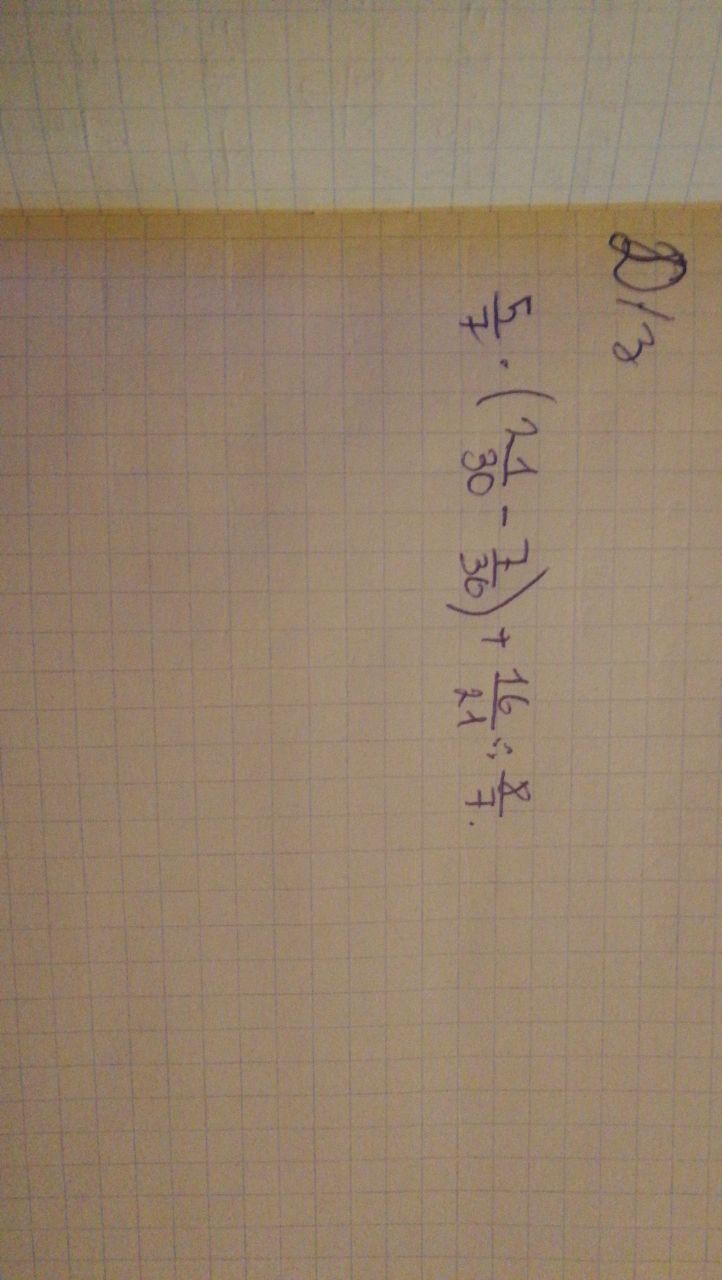 Д/з
5/7 · (2 1/30 - 7/36) + 16/21 : 8/7.